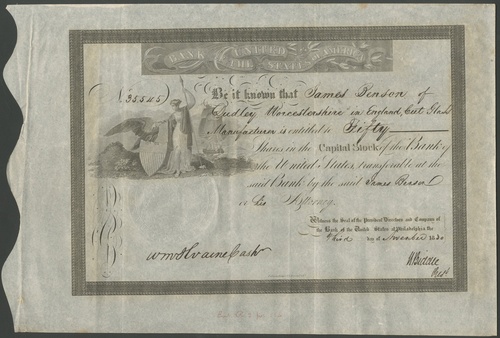 BANK OF THE UNITED STATES
No. 35545
Be it known that James Benson of
Dudley Worcestershire in England, Cut Glass
Manufacturer is entitled to Fifty
Shares in the Capital Stock of the Bank of
the United States, transferable at the
said Bank by the said James Benson
or his Attorney.
Witness the Seal of the President Directors and Company of
the Bank of the United States at Philadelphia the
third day of November 1830
Wm McIlvaine Cashr
N Biddle
Prest